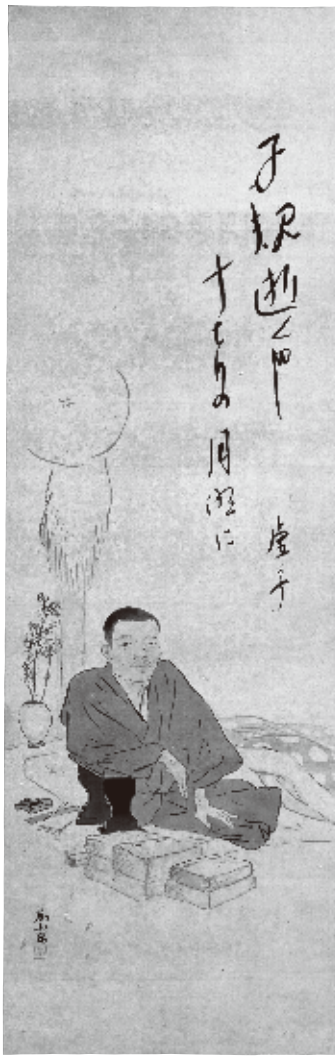 子規逝くや
十七日の月明に
虚子